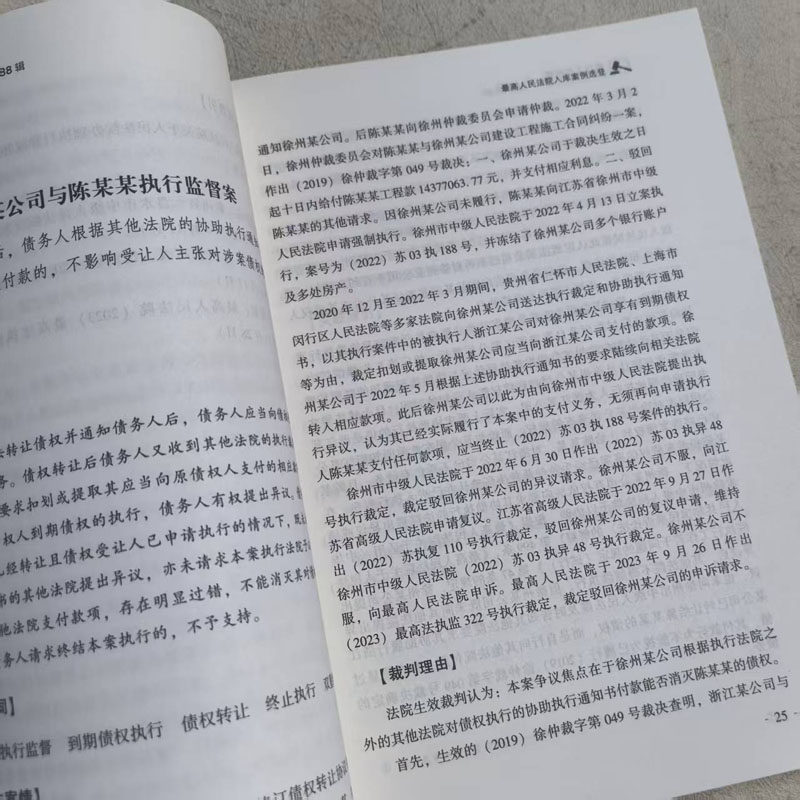 88 辑
某公司与陈某某执行监督案
后，债务人根据其他法院的协助执行通
付款的，不影响受让人主张对涉案债权
转让债权并通知债务人后，债务人应当向债
务。债权转让后债务人又收到其他法院的执行
要求扣划或提取其应当向原债权人支付的相应
权人到期债权的执行，债务人有权提出异议。
已经转让且债权受让人已申请执行的情况下，
书的其他法院提出异议，亦未请求本案执行法院
他法院支付款项，存在明显过错，不能消灭其对
务人请求终结本案执行的，不予支持。
词】
执行监督 到期债权执行 债权转让 终止执行
案情】
签订债权转让协
最高人民法院入库案例选登
通知徐州某公司。后陈某某向徐州仲裁委员会申请仲裁。2022 年 3 月 2
日，徐州仲裁委员会对陈某某与徐州某公司建设工程施工合同纠纷一案，
作出（2019）徐仲裁字第 049 号裁决：一、徐州某公司于裁决生效之日
起十日内给付陈某某工程款 14377063. 77 元，并支付相应利息。二、驳回
陈某某的其他请求。因徐州某公司未履行，陈某某向江苏省徐州市中级
人民法院申请强制执行。徐州市中级人民法院于 2022 年 4 月 13 日立案执
行，案号为（2022）苏 03 执 188 号，并冻结了徐州某公司多个银行账户
及多处房产。
2020 年 12 月至 2022 年 3 月期间，贵州省仁怀市人民法院、上海市
闵行区人民法院等多家法院向徐州某公司送达执行裁定和协助执行通知
书，以其执行案件中的被执行人浙江某公司对徐州某公司享有到期债权
等为由，裁定扣划或提取徐州某公司应当向浙江某公司支付的款项。徐
州某公司于 2022 年 5 月根据上述协助执行通知书的要求陆续向相关法院
转入相应款项。此后徐州某公司以此为由向徐州市中级人民法院提出执
行异议，认为其已经实际履行了本案中的支付义务，无须再向申请执行
人陈某某支付任何款项，应当终止（2022）苏 03 执 188 号案件的执行。
徐州市中级人民法院于 2022 年 6 月 30 日作出（2022）苏 03 执异 48
号执行裁定，裁定驳回徐州某公司的异议请求。徐州某公司不服，向江
苏省高级人民法院申请复议。江苏省高级人民法院于 2022 年 9 月 27 日作
出（2022）苏执复 110 号执行裁定，驳回徐州某公司的复议申请，维持
徐州市中级人民法院（2022）苏 03 执异 48 号执行裁定。徐州某公司不
服，向最高人民法院申诉。最高人民法院于 2023 年 9 月 26 日作出
（2023）最高法执监 322 号执行裁定，裁定驳回徐州某公司的申诉请求。
【裁判理由】
法院生效裁判认为：本案争议焦点在于徐州某公司根据执行法院之
外的其他法院对债权执行的协助执行通知书付款能否消灭陈某某的债权。
首先，生效的（2019）徐仲裁字第 049 号裁决查明，浙江某公司与
· 25 ·